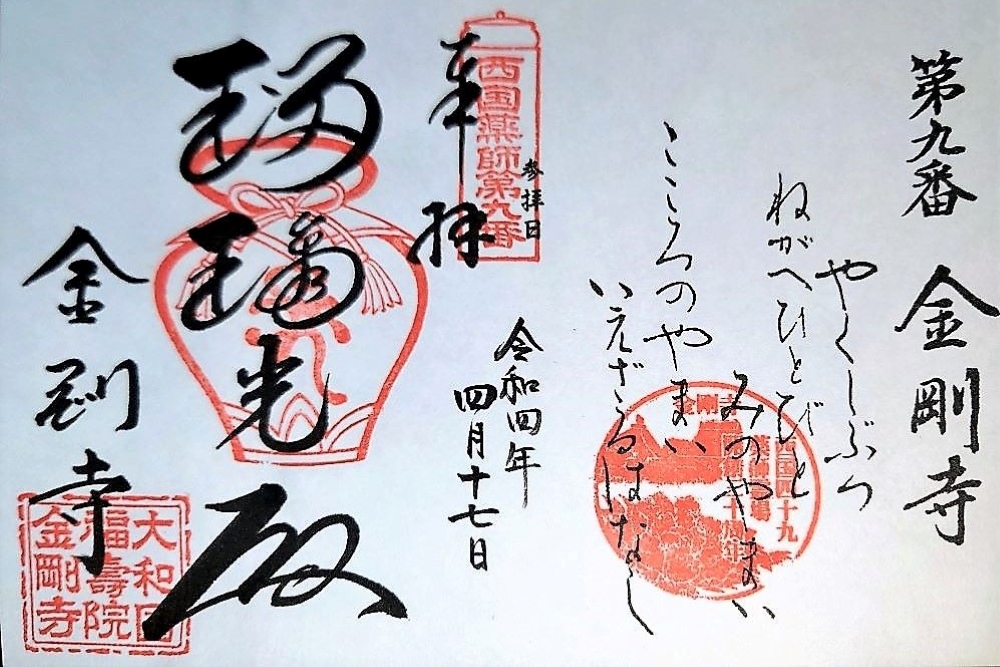 第九番 金剛寺
やくしぶつ
ねがへひとびと
みのやまい
こころのやまい
いえざるはなし
金剛寺
西国薬師第九番
参拝日
令和四年
四月十七日
奉拝
瑠璃光殿
金剛寺
大和国
福壽院
金剛寺